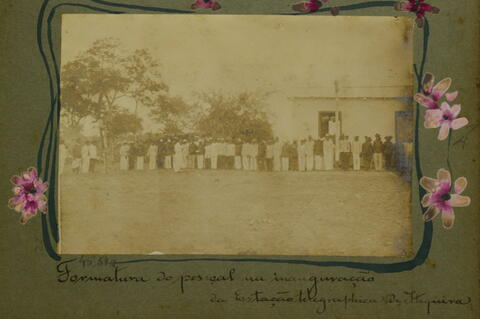 Formatura do pessoal na inauguração
da Estação telegraphica de Itiquira